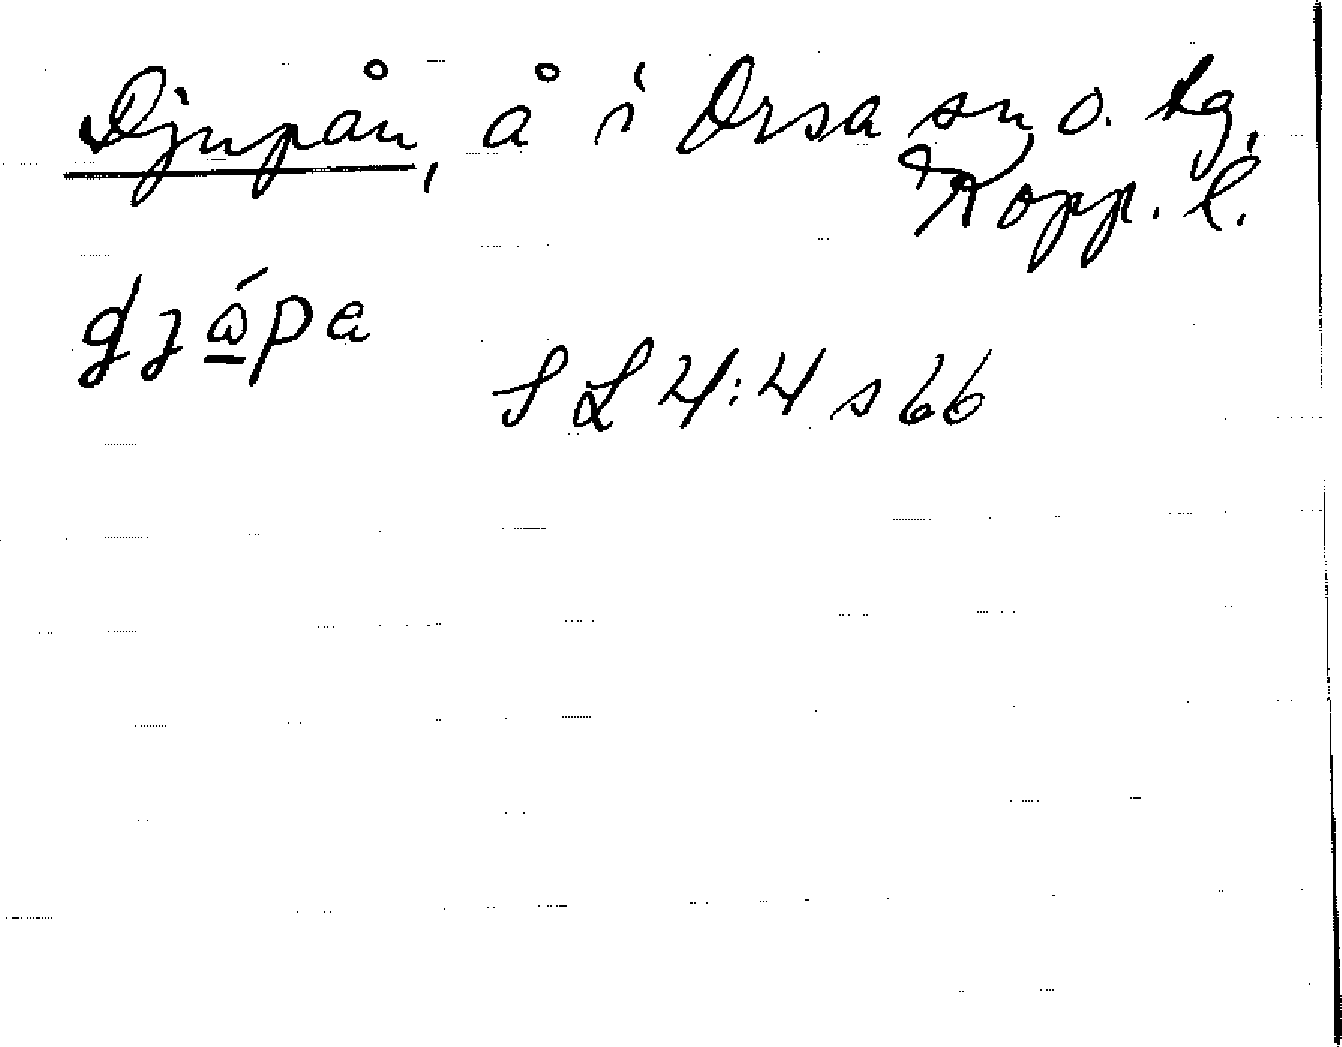 Djupån, å i Orsa sn o. tg,
Kopp. l.
SL 4:4 s 66